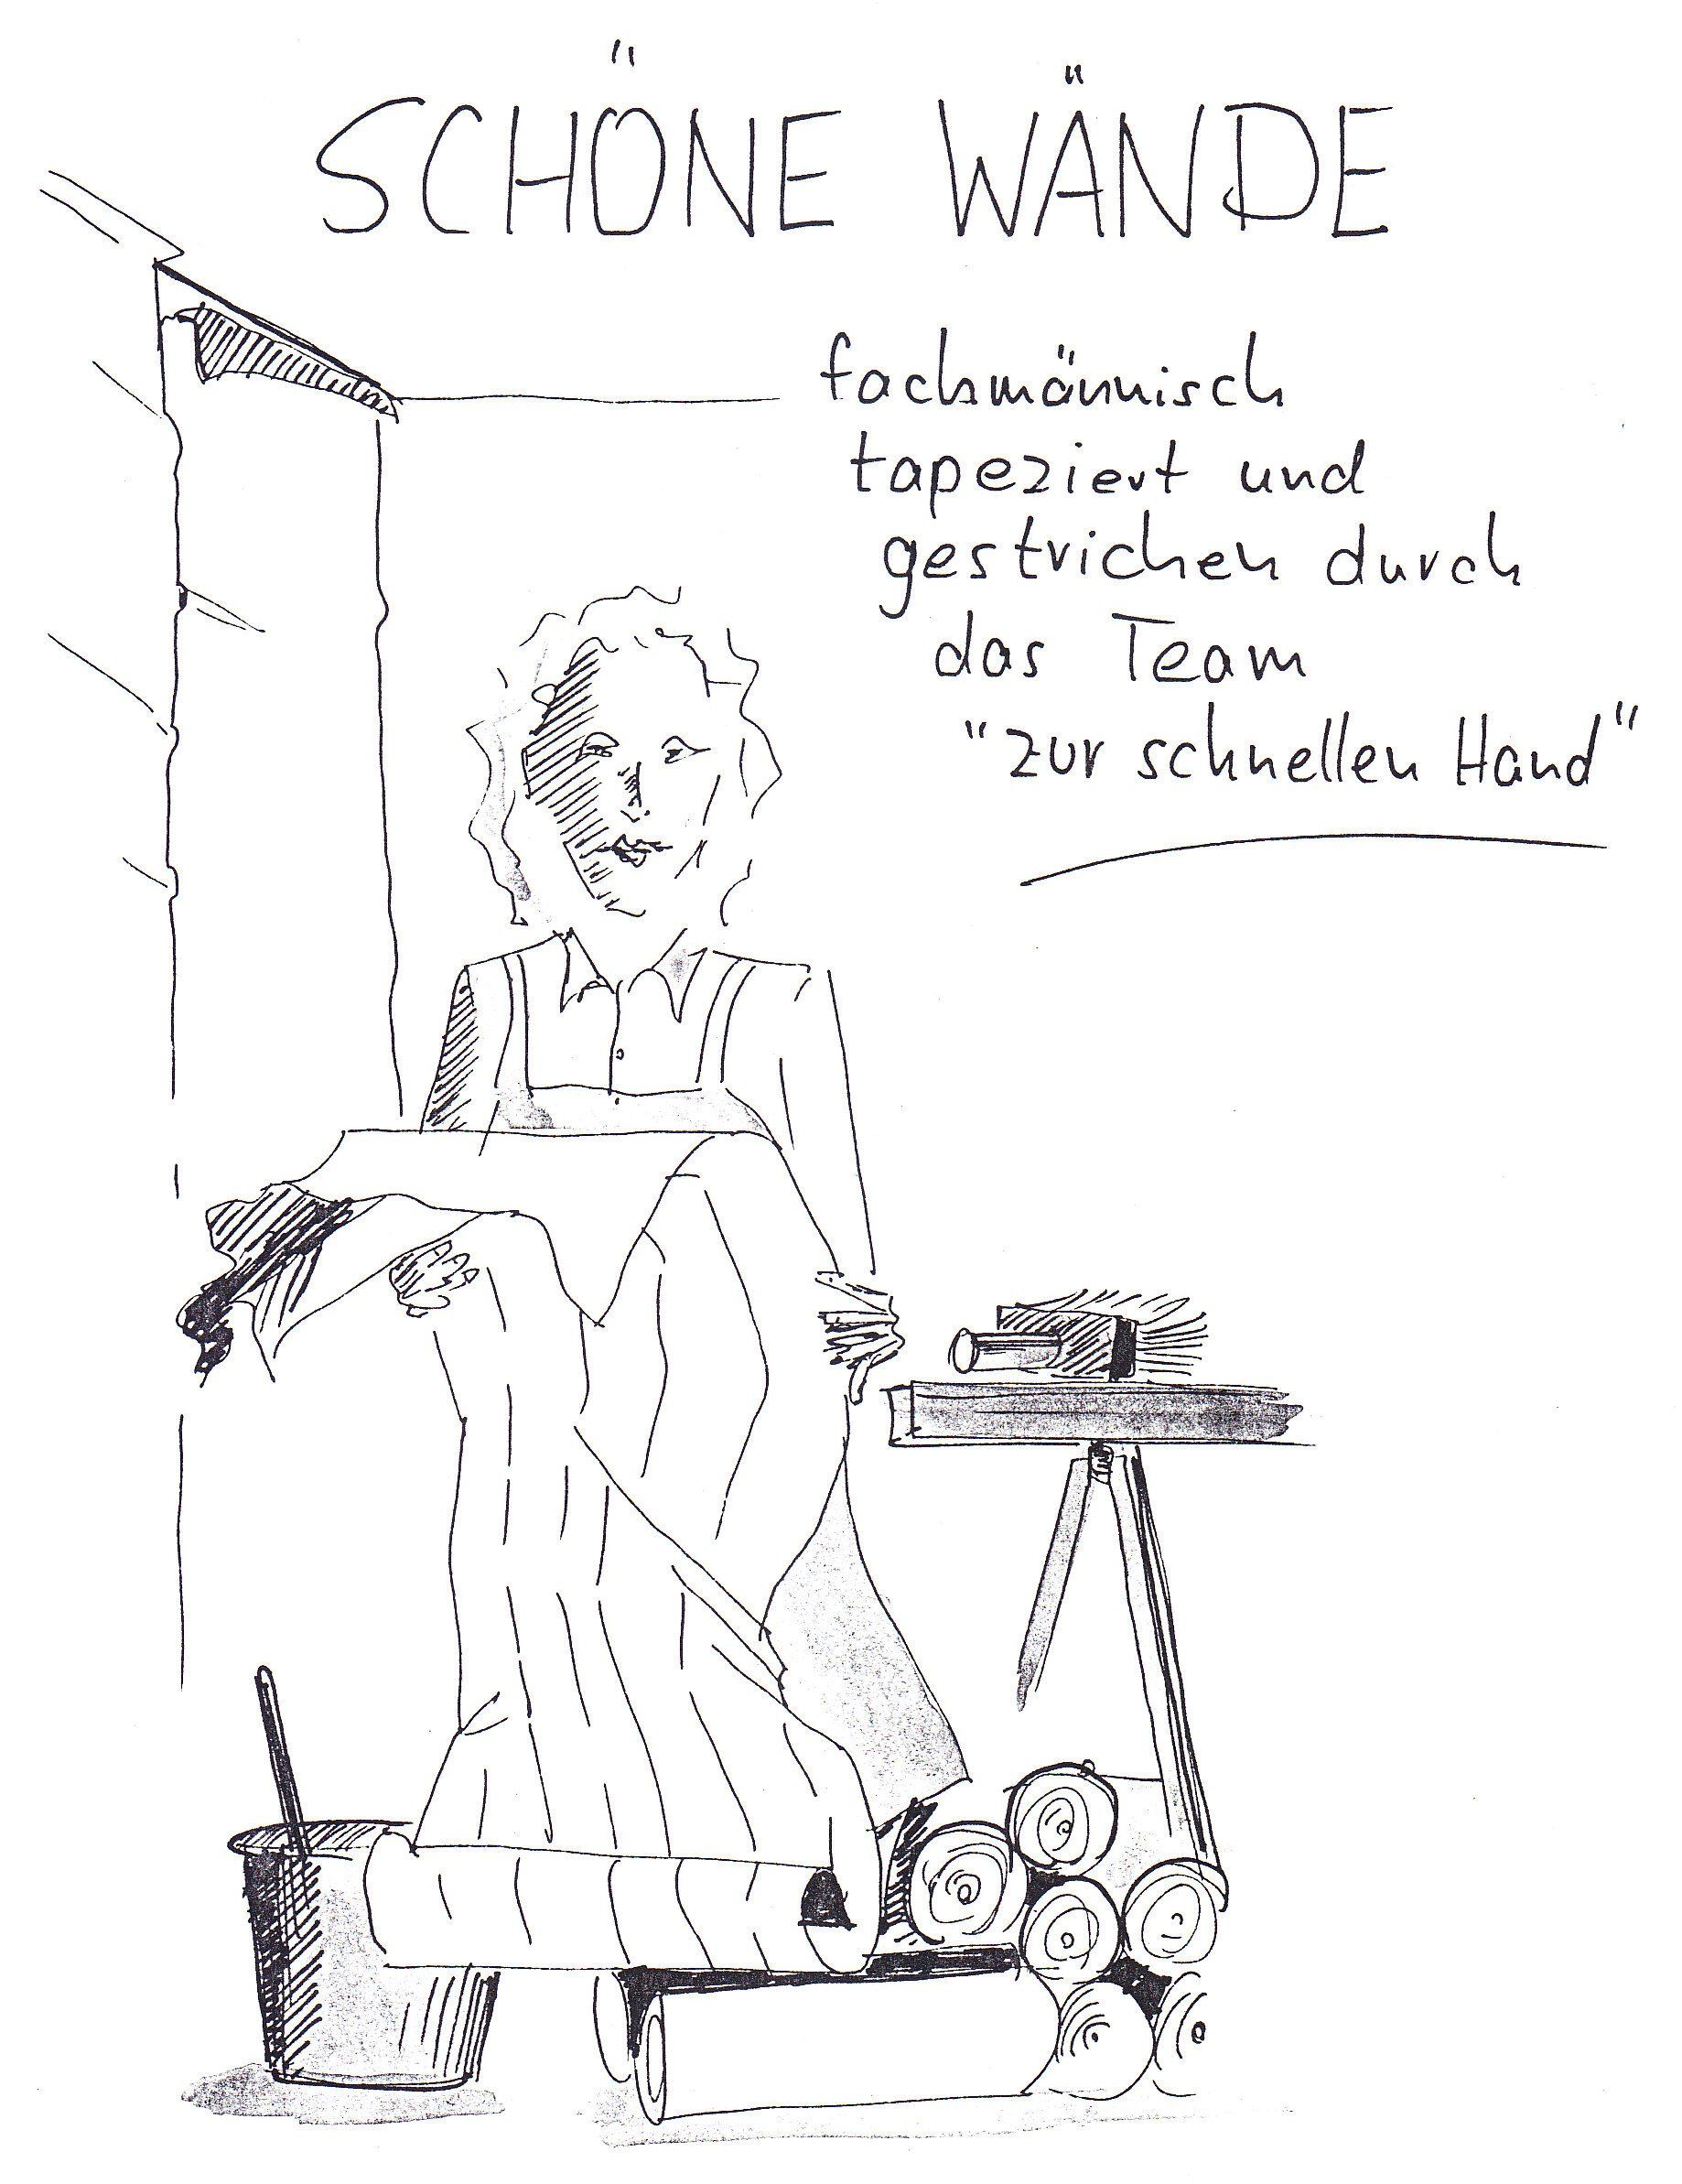 SCHÖNE WÄNDE
fachmännisch
tapeziert und
gestrichen durch
das Team
"zur schnellen Hand"